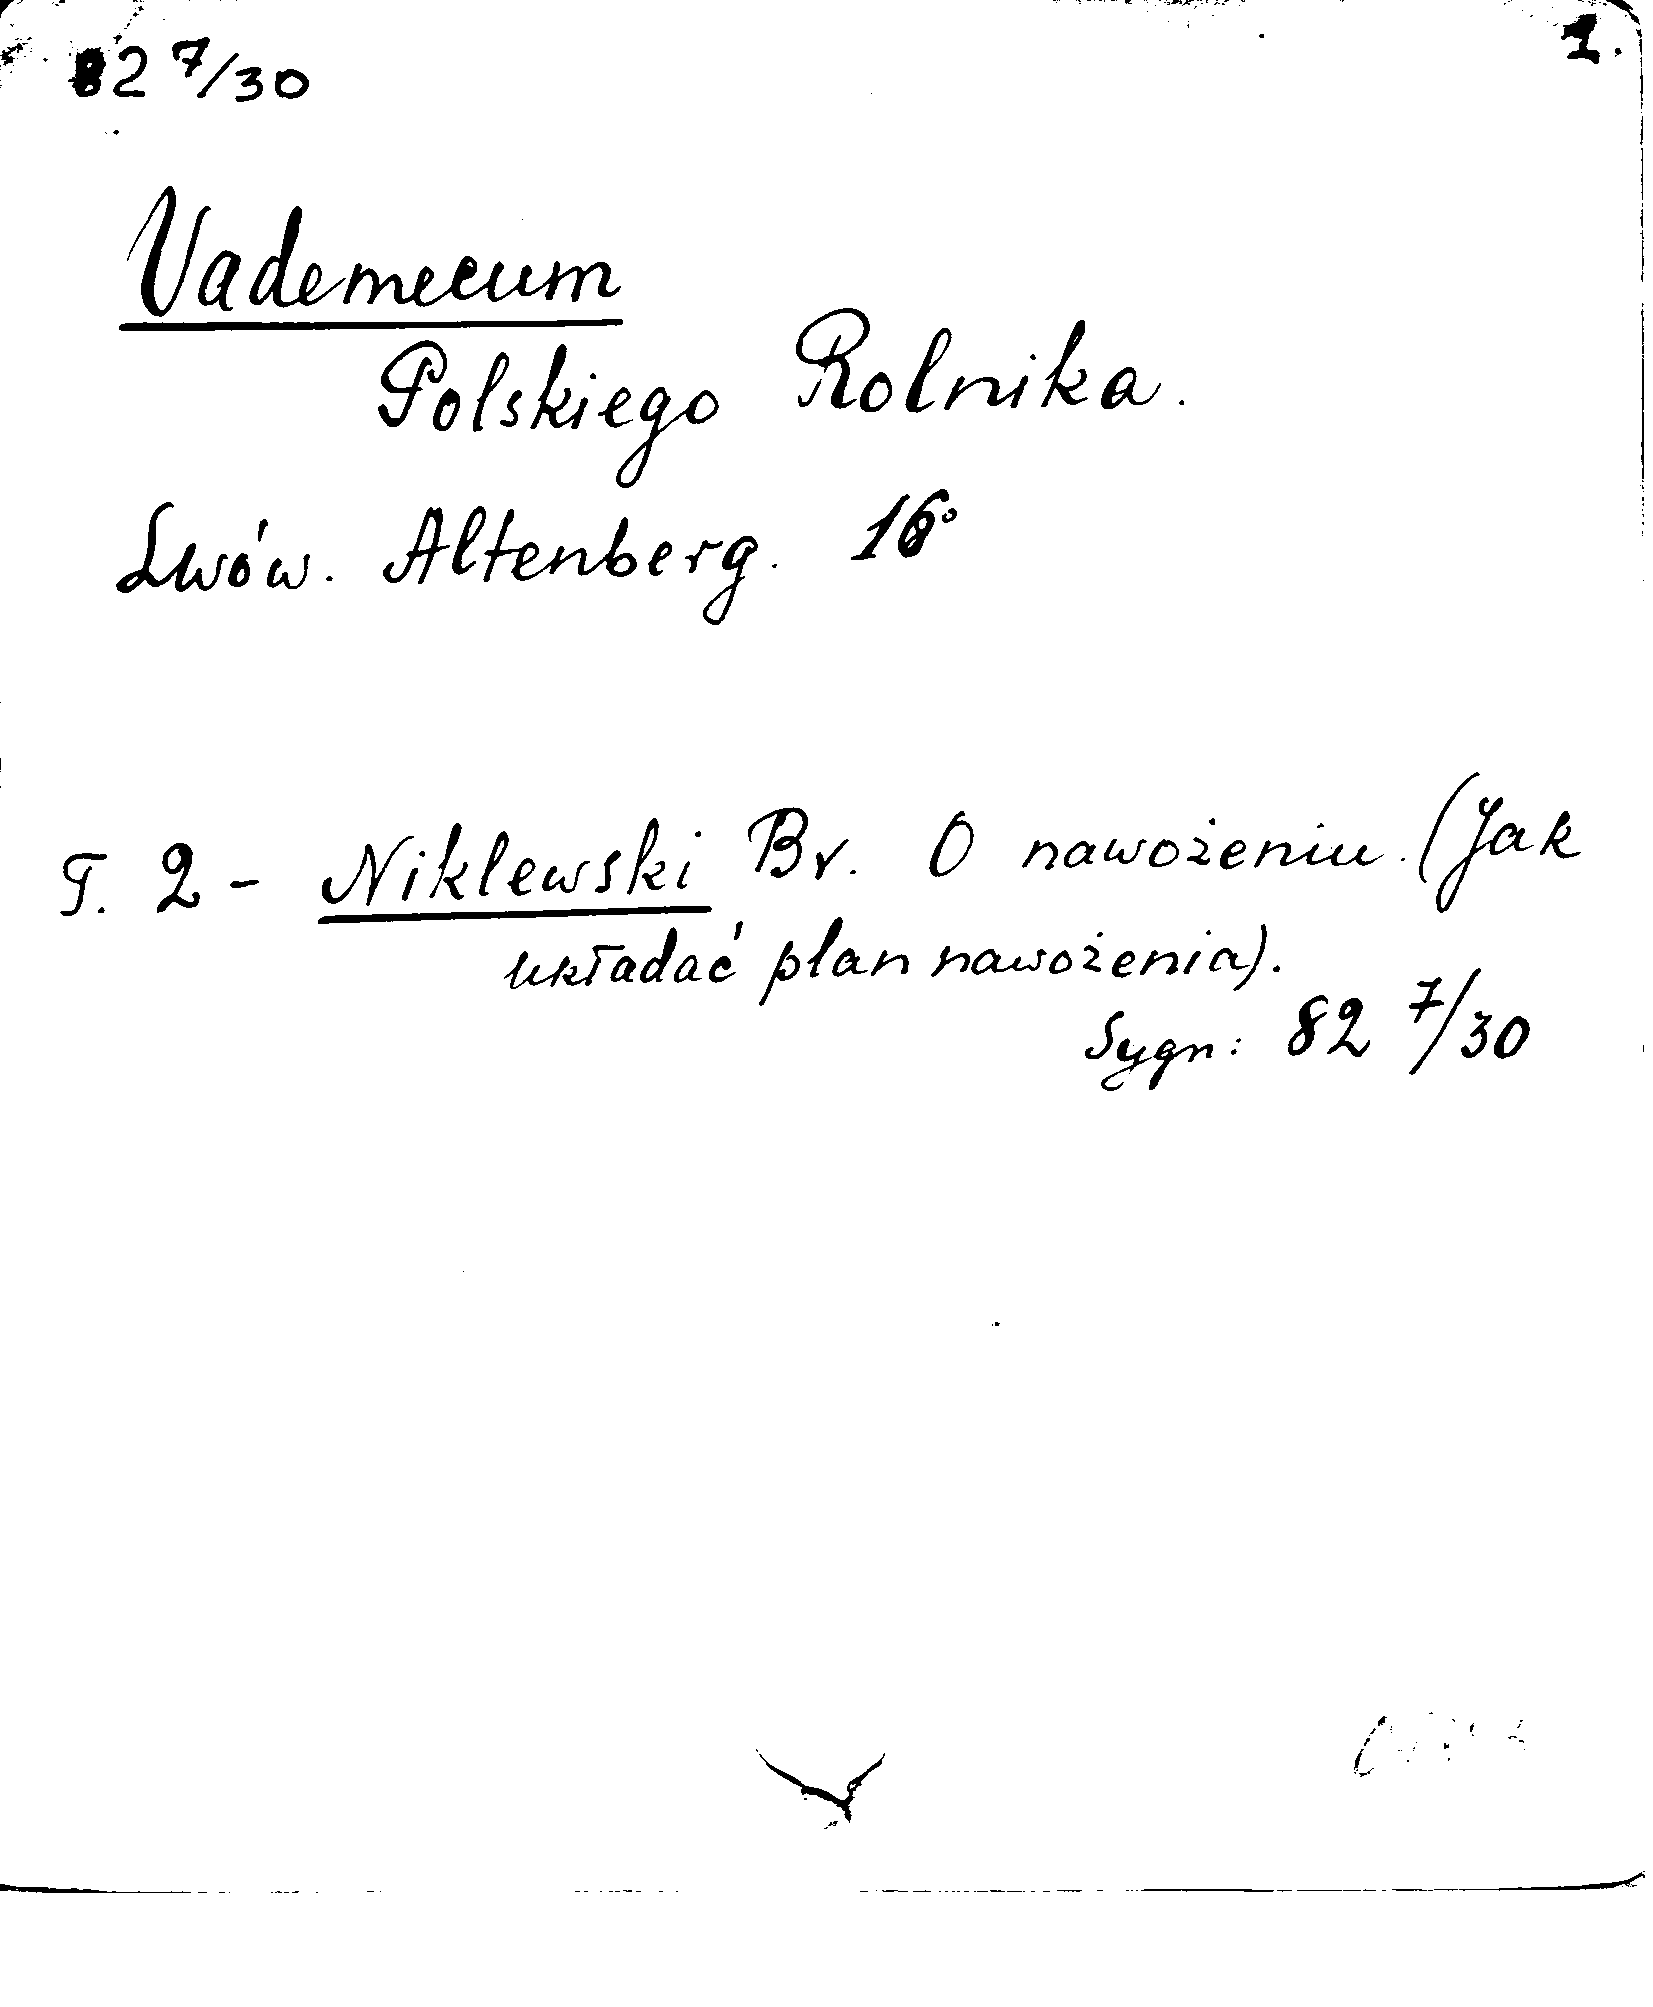 82 7/30
1.
Vademecum
Polskiego Rolnika.
Lwów. Altenberg. 16°
T. 2 - Niklewski Br. O nawożeniu. (Jak
układać plan nawożenia).
Sygn: 82 7/30